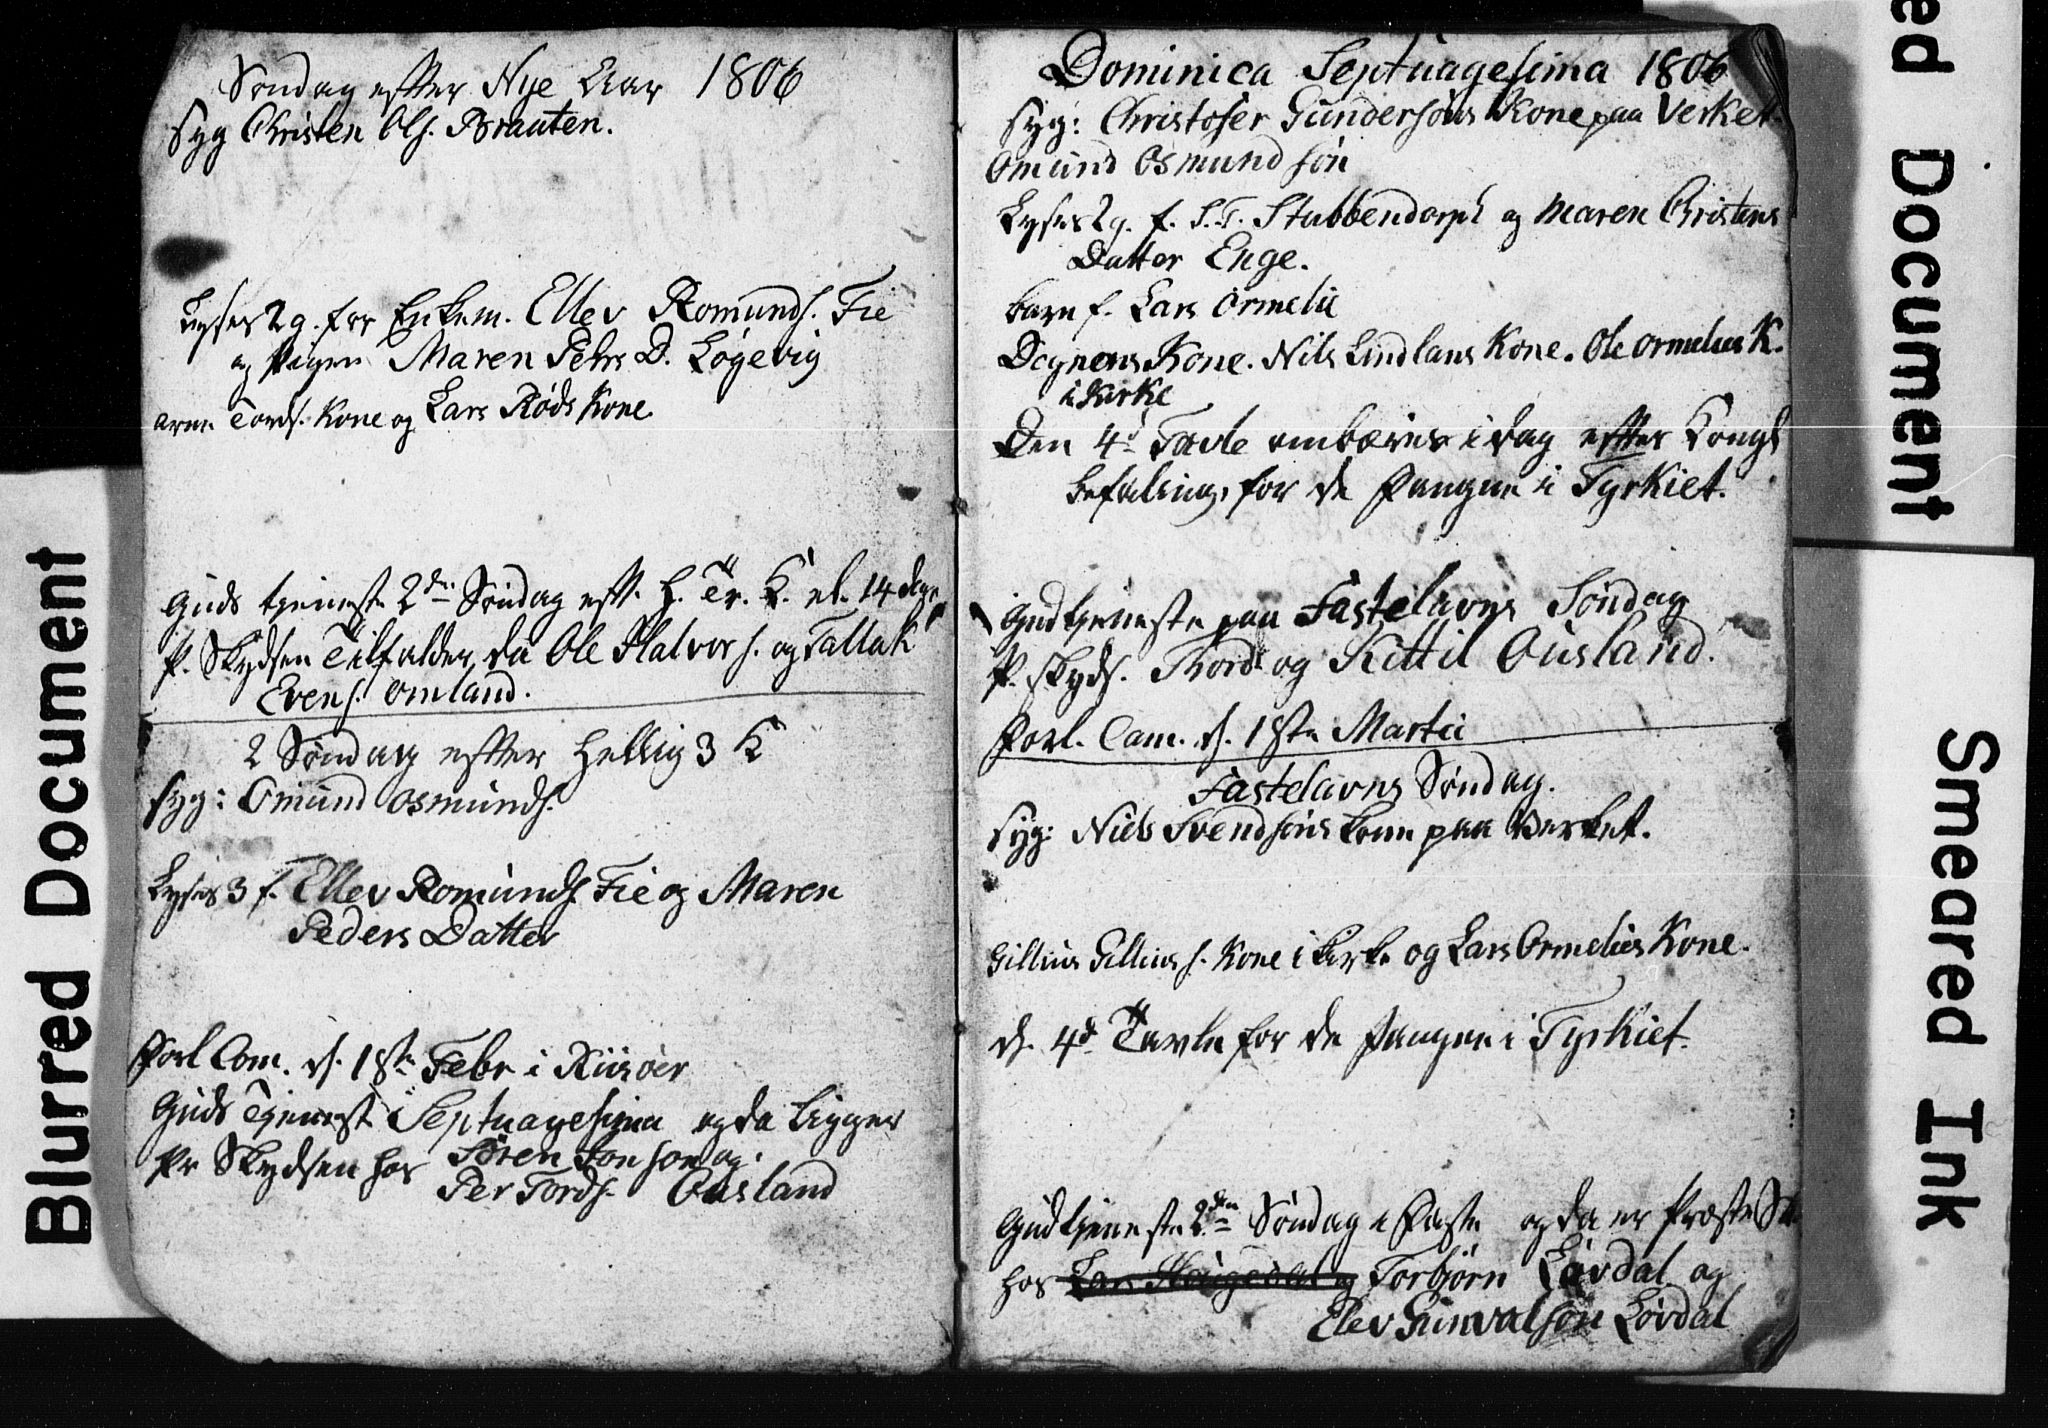 Søndag efter Nye Aar 1806
Syg Christen Ols. Brauten.
Lyses 2 g. for Enkem. Ellev Romunds. Fie
og Pigen Maren Pehrs D. Løgevig
Arne Tords. Kone og Lars Røds Kone
Guds tjeneste 2den Søndag eft. H. Tr. K. el. 14 dage
P. Skydsen Tilfalder, da Ole Halvors. og Tallak
Evens. Omland.
2 Søndag efter Hellig 3 K
Syg: Omund Osmunds.
Lyses 3 f. Ellev Romunds Fie og Maren
Peders Datter
Porl Com. d. 1ste Febr i Riisøer
Guds Tjeneste Septuagesima og da ligger
Pr Skydsen hos Søren Jonson og
Per Tords. Ousland
Dominica Septuagesima 1806
Syg: Christofer Gundersøns Kone paa Verket.
Omund Osmundsøn
Lyses 2 g. f. S. T. Stubbendorph og Maren Christens
Datter Enge.
barn f. Lars Ormelie
Degnens Kone. Nils Lindlans Kone. Ole Ormelies K.
i Kirke
Den 4d Tavle ombæres i dag efter Kongl
befaling, for de Fangne i Tyrkiet.
Gudtjeneste paa Fastelavns Søndag
P. skyds. Tord og Kittil Ousland.
Porl. Com. d. 1ste Martii
Fastelavns Søndag.
Syg: Niels Svendsøns kone paa Verket.
Gillius Gillius s. Kone i kirke og Lars Ormelies Kone.
d. 4de Tavle for de Fangne i Tyrkiet.
Gudtjeneste 2den Søndag i Faste og da er Præste Sk.
hos Torbjørn Løvdal og
Elev Gunvalsøn Løvdal
Blurred Document
ed Document
Smeared Ink